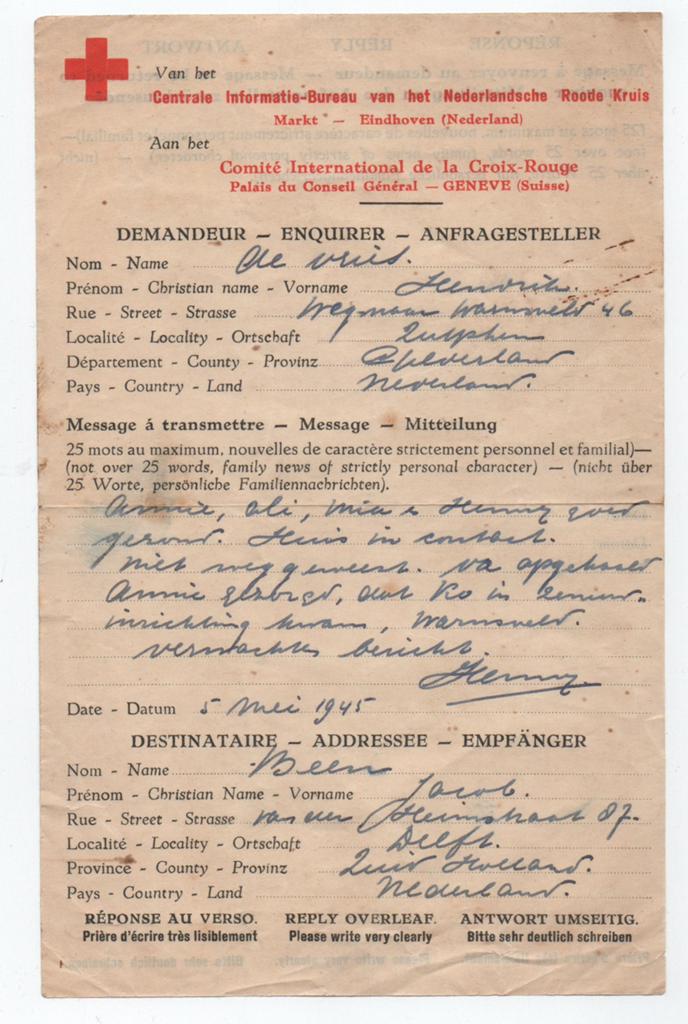 Van het
Centrale Informatie-Bureau van het Nederlandsche Roode Kruis
Markt — Eindhoven (Nederland)
Aan het
Comité International de la Croix-Rouge
Palais du Conseil Général — GENEVE (Suisse)
DEMANDEUR — ENQUIRER — ANFRAGESTELLER
Nom - Name de Vries.
Prénom - Christian name - Vorname Hendrik.
Rue - Street - Strasse Weg naar Warnsveld 46
Localité - Locality - Ortschaft Zutphen
Département - County - Provinz Gelderland
Pays - Country - Land Nederland.
Message á transmettre — Message — Mitteilung
25 mots au maximum, nouvelles de caractère strictement personnel et familial)—
(not over 25 words, family news of strictly personal character) — (nicht über
25 Worte, persönliche Familiennachrichten).
Annie, Ali, Mia e Henny goed
gezond. Huis in contact.
Niet weggeweest. Va opgehaald
Annie gezorgd, dat Ko in
inrichting kwam, Warnsveld.
verwachten bericht.
Henny
Date - Datum 5 Mei 1945
DESTINATAIRE — ADDRESSEE — EMPFÄNGER
Nom - Name Been
Prénom - Christian Name - Vorname Jacob.
Rue - Street - Strasse van der Heimstraat 87.
Localité - Locality - Ortschaft Delft.
Province - County - Provinz Zuid Holland.
Pays - Country - Land Nederland.
RÉPONSE AU VERSO. REPLY OVERLEAF. ANTWORT UMSEITIG.
Prière d'écrire très lisiblement Please write very clearly Bitte sehr deutlich schreiben